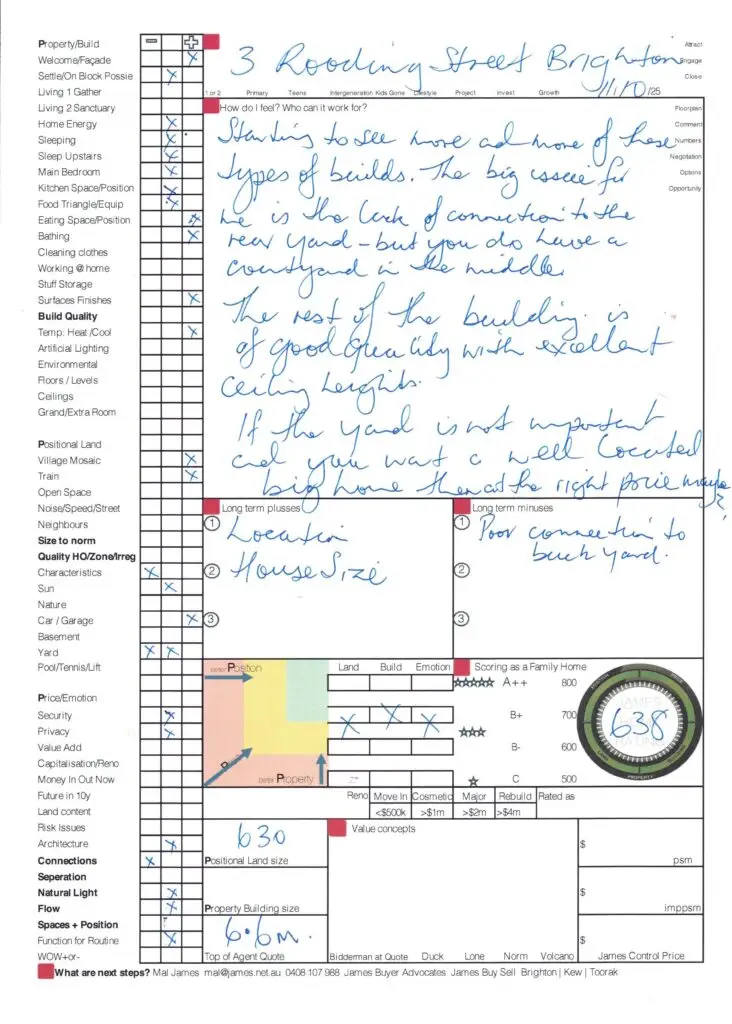 Property/Build
Welcome/Façade
Settle/On Block Possie
Living 1 Gather
Living 2 Sanctuary
Home Energy
Sleeping
Sleep Upstairs
Main Bedroom
Kitchen Space/Position
Food Triangle/Equip
Eating Space/Position
Bathing
Cleaning clothes
Working @ home
Stuff Storage
Surfaces Finishes
Build Quality
Temp: Heat /Cool
Artificial Lighting
Environmental
Floors / Levels
Ceilings
Grand/Extra Room
Positional Land
Village Mosaic
Train
Open Space
Noise/Speed/Street
Neighbours
Size to norm
Quality HO/Zone/Irreg
Characteristics
Sun
Nature
Car / Garage
Basement
Yard
Pool/Tennis/Lift
Price/Emotion
Security
Privacy
Value Add
Capitalisation/Reno
Money In Out Now
Future in 10y
Land content
Risk Issues
Architecture
Connections
Seperation
Natural Light
Flow
Spaces + Position
Function for Routine
WOW+or-
3 Rooding Street Brighton
/25
Attract
Engage
Close
1 or 2 Primary Teens Intergeneration Kids Gone Lifestyle Project Invest Growth
How do I feel? Who can it work for?
Floorplan
Comment
Numbers
Negotiation
Options
Opportunity
Starting to see more and more of these
types of builds. The big issue for
me is the lack of connection to the
rear yard - but you do have a
courtyard in the middle.
The rest of the building is
of good quality with excellent
ceiling heights.
If the yard is not important
and you want a well located
big home then at the right price maybe?
Long term plusses
1 Location
2 House Size
3
Long term minuses
1 Poor connection to
back yard.
2
3
better Position
better Property
Land Build Emotion
Scoring as a Family Home
A++ 800
B+ 700
B- 600
C 500
638
PROPERTY
Reno Move In Cosmetic Major Rebuild Rated as
<$500k >$1m >$2m >$4m
630
Positional Land size
Property Building size
6.6m.
Top of Agent Quote
Value concepts
Bidderman at Quote Duck Lone Norm Volcano
$ psm
$ imppsm
$
James Control Price
What are next steps? Mal James mal@james.net.au 0408 107 988 James Buyer Advocates James Buy Sell Brighton | Kew | Toorak